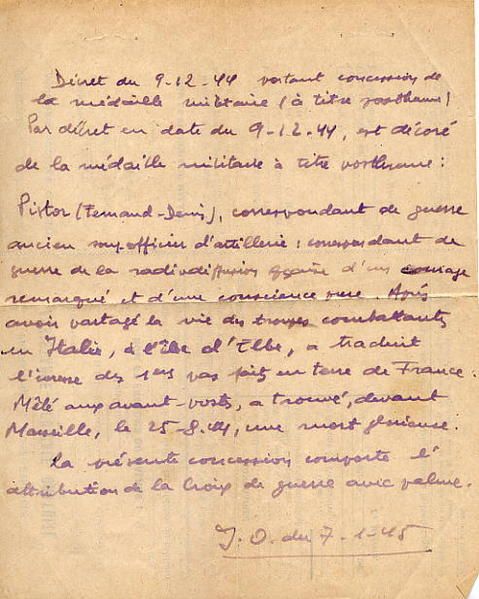 Décret du 9-12-44 portant concession de
la médaille militaire (à titre posthume)
Par décret en date du 9-12-44, est décoré
de la médaille militaire à titre posthume :
Pistor (Fernand-Denis), correspondant de guerre
ancien sous officier d'artillerie : correspondant de
guerre de la radiodiffusion d'un courage
remarqué et d'une conscience rare. Après
avoir partagé la vie des troupes combattants
en Italie, à l'île d'Elbe, a traduit
l'ivresse des 1ers pas faits en terre de France.
Mêlé aux avant-posts, a trouvé, devant
Marseille, le 25-8-44, une mort glorieuse.
La présente concession comporte l'
attribution de la Croix de guerre avec palme.
J.O. du 7-1-45